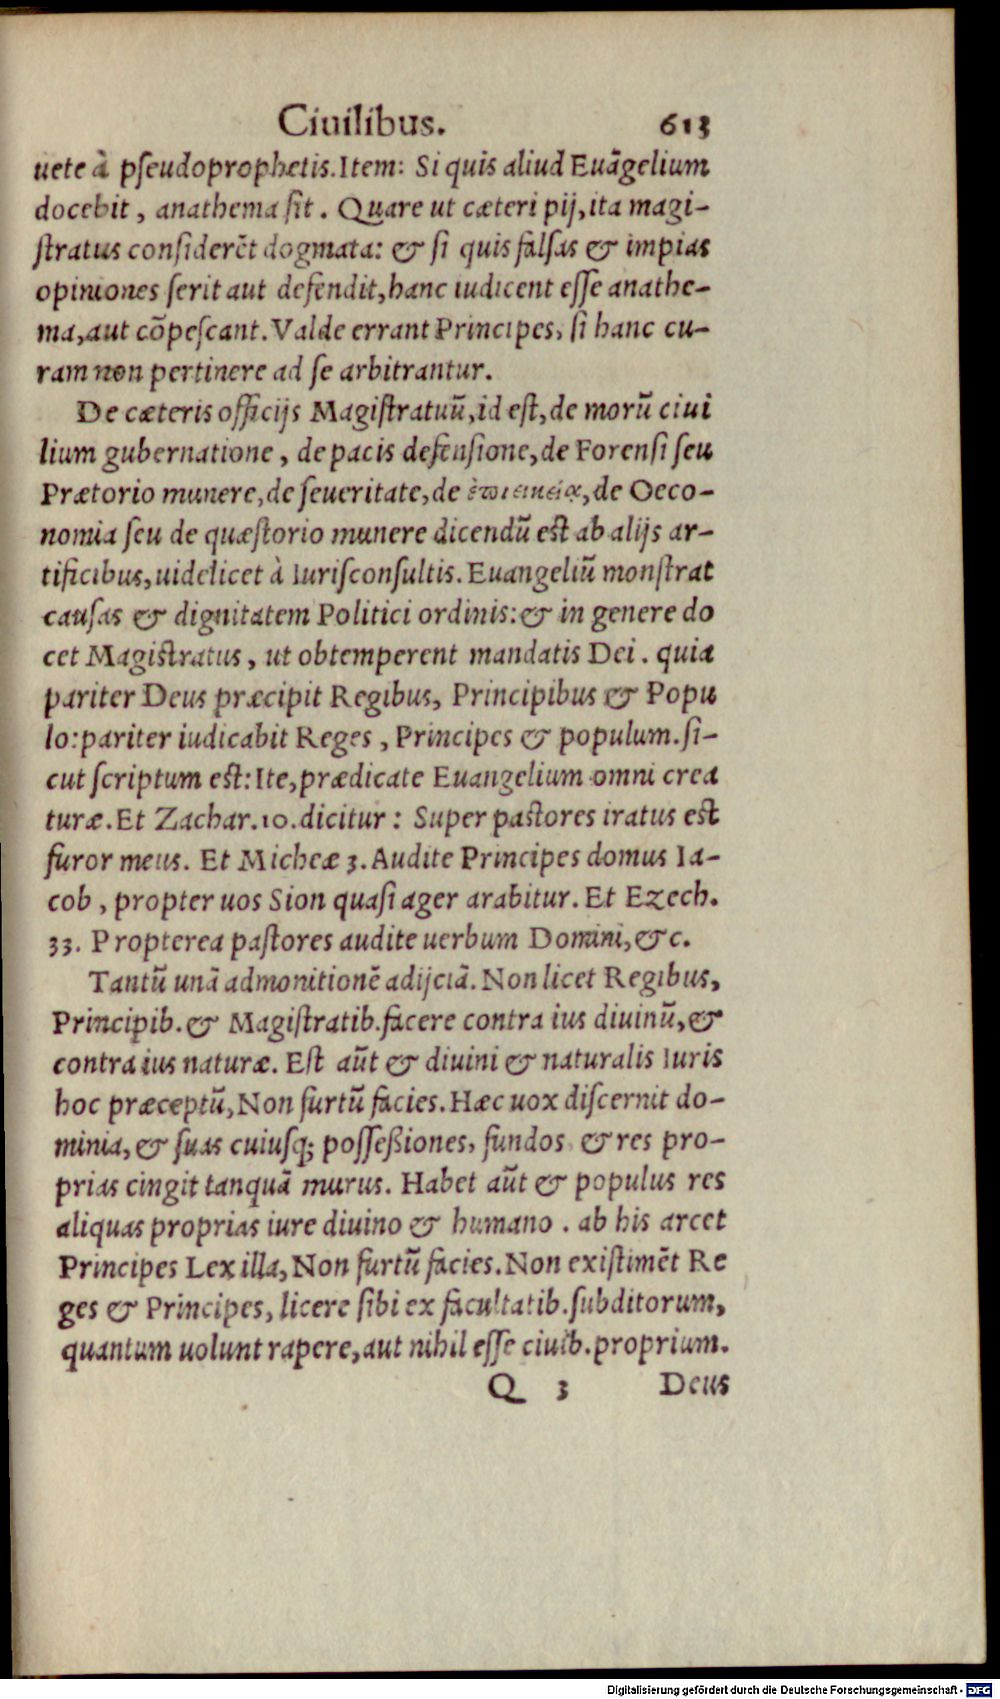 Ciuilibus. 613
uete à pſeudoprophetis. Item: Si quis aliud Euãgelium
docebit, anathema ſit. Quare ut cæteri pij, ita magi-
ſtratus conſiderẽt dogmata: & ſi quis falſas & impias
opiniones ſerit aut defendit, hanc iudicent eſſe anathe-
ma, aut cõpeſcant. Valde errant Principes, ſi hanc cu-
ram non pertinere ad ſe arbitrantur.
De cæteris officijs Magiſtratuũ, id eſt, de morũ ciui
lium gubernatione, de pacis defenſione, de Forenſi ſeu
Prætorio munere, de ſeueritate, de ἐπιεικείᾳ, de Oeco-
nomia ſeu de quæſtorio munere dicendũ eſt ab alijs ar-
tificibus, uidelicet à Iuriſconſultis. Euangeliũ monſtrat
cauſas & dignitatem Politici ordinis: & in genere do
cet Magiſtratus, ut obtemperent mandatis Dei. quia
pariter Deus præcipit Regibus, Principibus & Popu
lo: pariter iudicabit Reges, Principes & populum. ſi-
cut ſcriptum eſt: Ite, prædicate Euangelium omni crea
turæ. Et Zachar. 10. dicitur: Super paſtores iratus eſt
furor meus. Et Micheæ 3. Audite Principes domus Ia-
cob, propter uos Sion quaſi ager arabitur. Et Ezech.
33. Propterea paſtores audite uerbum Domini, &c.
Tantũ unã admonitionẽ adijciã. Non licet Regibus,
Principib. & Magiſtratib. facere contra ius diuinũ, &
contra ius naturæ. Eſt aũt & diuini & naturalis Iuris
hoc præceptũ, Non furtũ facies. Hæc uox diſcernit do-
minia, & ſuas cuiuſq; poſſeßiones, fundos & res pro-
prias cingit tanquã murus. Habet aũt & populus res
aliquas proprias iure diuino & humano. ab his arcet
Principes Lex illa, Non furtũ facies. Non exiſtimẽt Re
ges & Principes, licere ſibi ex facultatib. ſubditorum,
quantum uolunt rapere, aut nihil eſſe ciuib. proprium.
Q 3 Deus
Digitalisierung gefördert durch die Deutsche Forschungsgemeinschaft - DFG